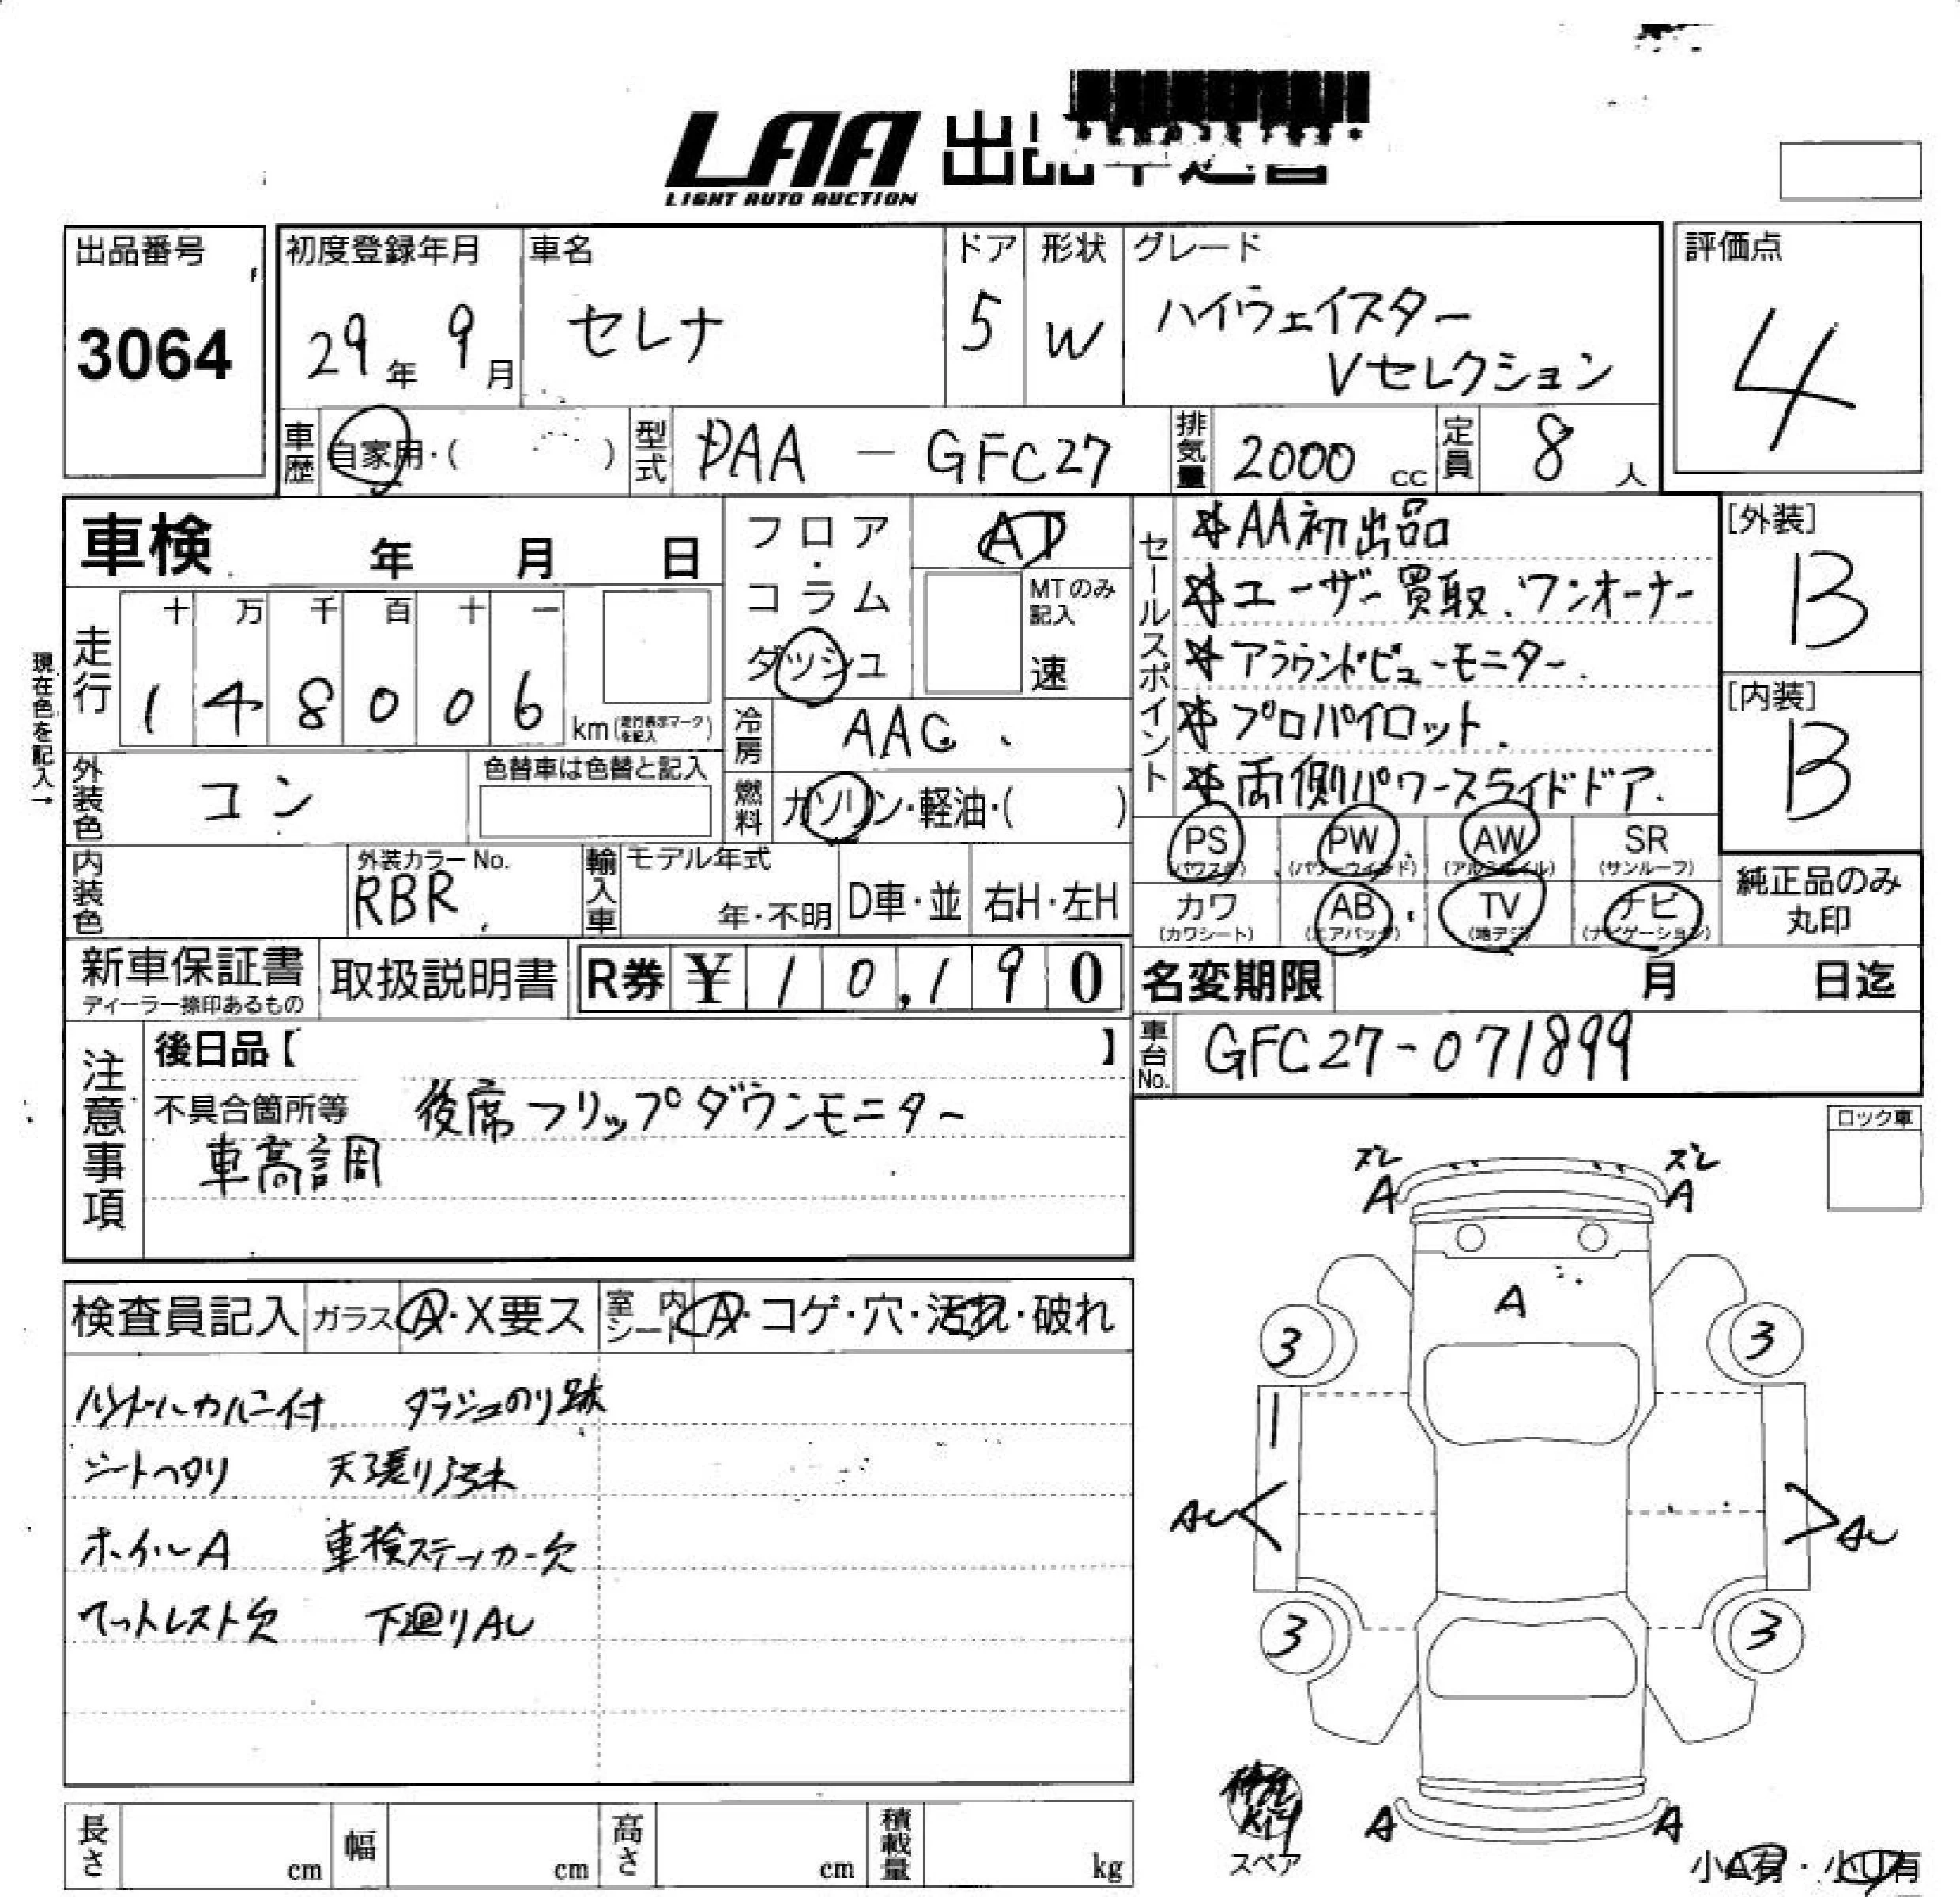 LAA 出品
LIGHT AUTO AUCTION
出品番号
3064
初度登録年月
29年 9月
車名
セレナ
ドア
5
形状
W
グレード
ハイウェイスター
Vセレクション
評価点
4
車歴
自家用・( )
型式
DAA - GFC27
排気量
2000 cc
定員
8 人
車検 年 月 日
フロア・コラム
ダッシュ
AT
MTのみ記入
速
セールスポイント
☆AA初出品
☆ユーザー買取、ワンオーナー
☆アラウンドビューモニター
☆プロパイロット
☆両側パワースライドドア
[外装]
B
[内装]
B
現在色を記入→
走行
十 万 千 百 十 一
1 4 8 0 0 6 km (走行表示マークを記入)
冷房
AAC
外装色
コン
色替車は色替と記入
燃料
ガソリン・軽油・( )
PS (パワステ)
PW (パワーウインド)
AW (アルミホイル)
SR (サンルーフ)
カワ (カワシート)
AB (エアバッグ)
TV (地デジ)
ナビ (ナビゲーション)
純正品のみ
丸印
内装色
外装カラーNo.
RBR
輸入車
モデル年式
年・不明
D車・並
右H・左H
新車保証書
ディーラー捺印あるもの
取扱説明書
R券 ¥ 10,190
名変期限 月 日迄
車台No.
GFC27-071899
注意事項
後日品【 】
不具合箇所等 後席フリップダウンモニター
車高調
ロック車
検査員記入
ガラス A・X要ス
室内シート A・コゲ・穴・汚れ・破れ
ハンドルカバー付 ダッシュのり跡
シートヘタリ 天張り汚れ
ホイルA 車検ステッカー欠
フットレスト欠 下廻りAU
ズレ ズレ
A A
A
3 3
AU AU
3 3
A A
スペア
小A有・小U有
長さ cm
幅 cm
高さ cm
積載量 kg